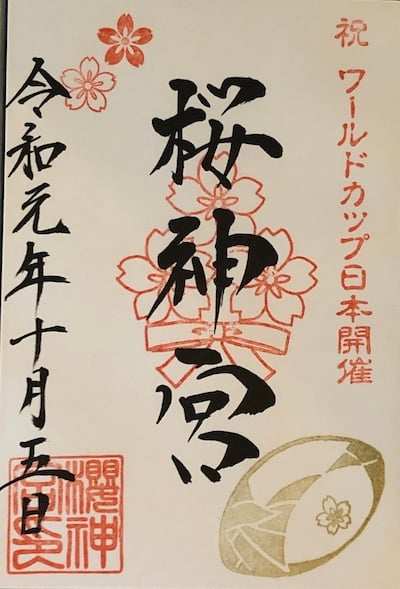 祝 ワールドカップ日本開催
桜神宮
令和元年十月五日
櫻神
宮印